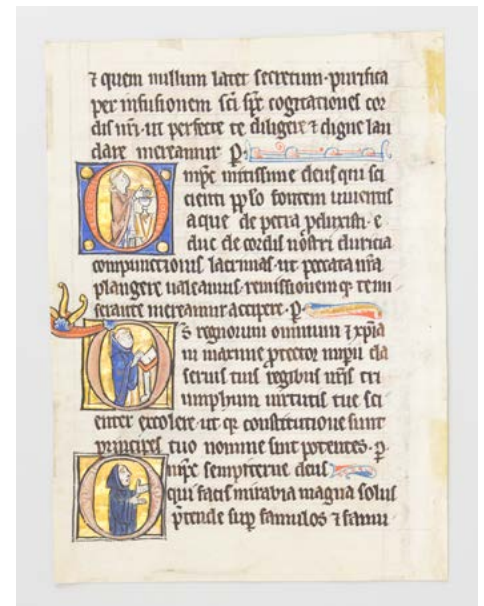 ⁊ quem nullum latet secretum · purifica
per infusionem sci spc cogitationes cor
dis nri · ut perfecte te diligere ⁊ digne lau
dare mereamur P ·
Ompc mitissime deus qui si
cienti pplo fontem uiuentis
aque de petra pduxisti · e
duc de cordis nostri duricia
compunctionis lacrimas · ut peccata nra
plangere ualeamus · remissionem q te mi
serante mereamur accipere · P ·
Os regnorum omnium ⁊ xpia
ni maxime protector imperii da
seruis tuis regibus nris tri
umphum uirtutis tue sci
enter excolere · ut q constitutione sunt
principes tuo nomine sint potentes · P ·
Ompc sempiterne deus
qui facis mirabia magna solus
ptende sup famulos ⁊ famu